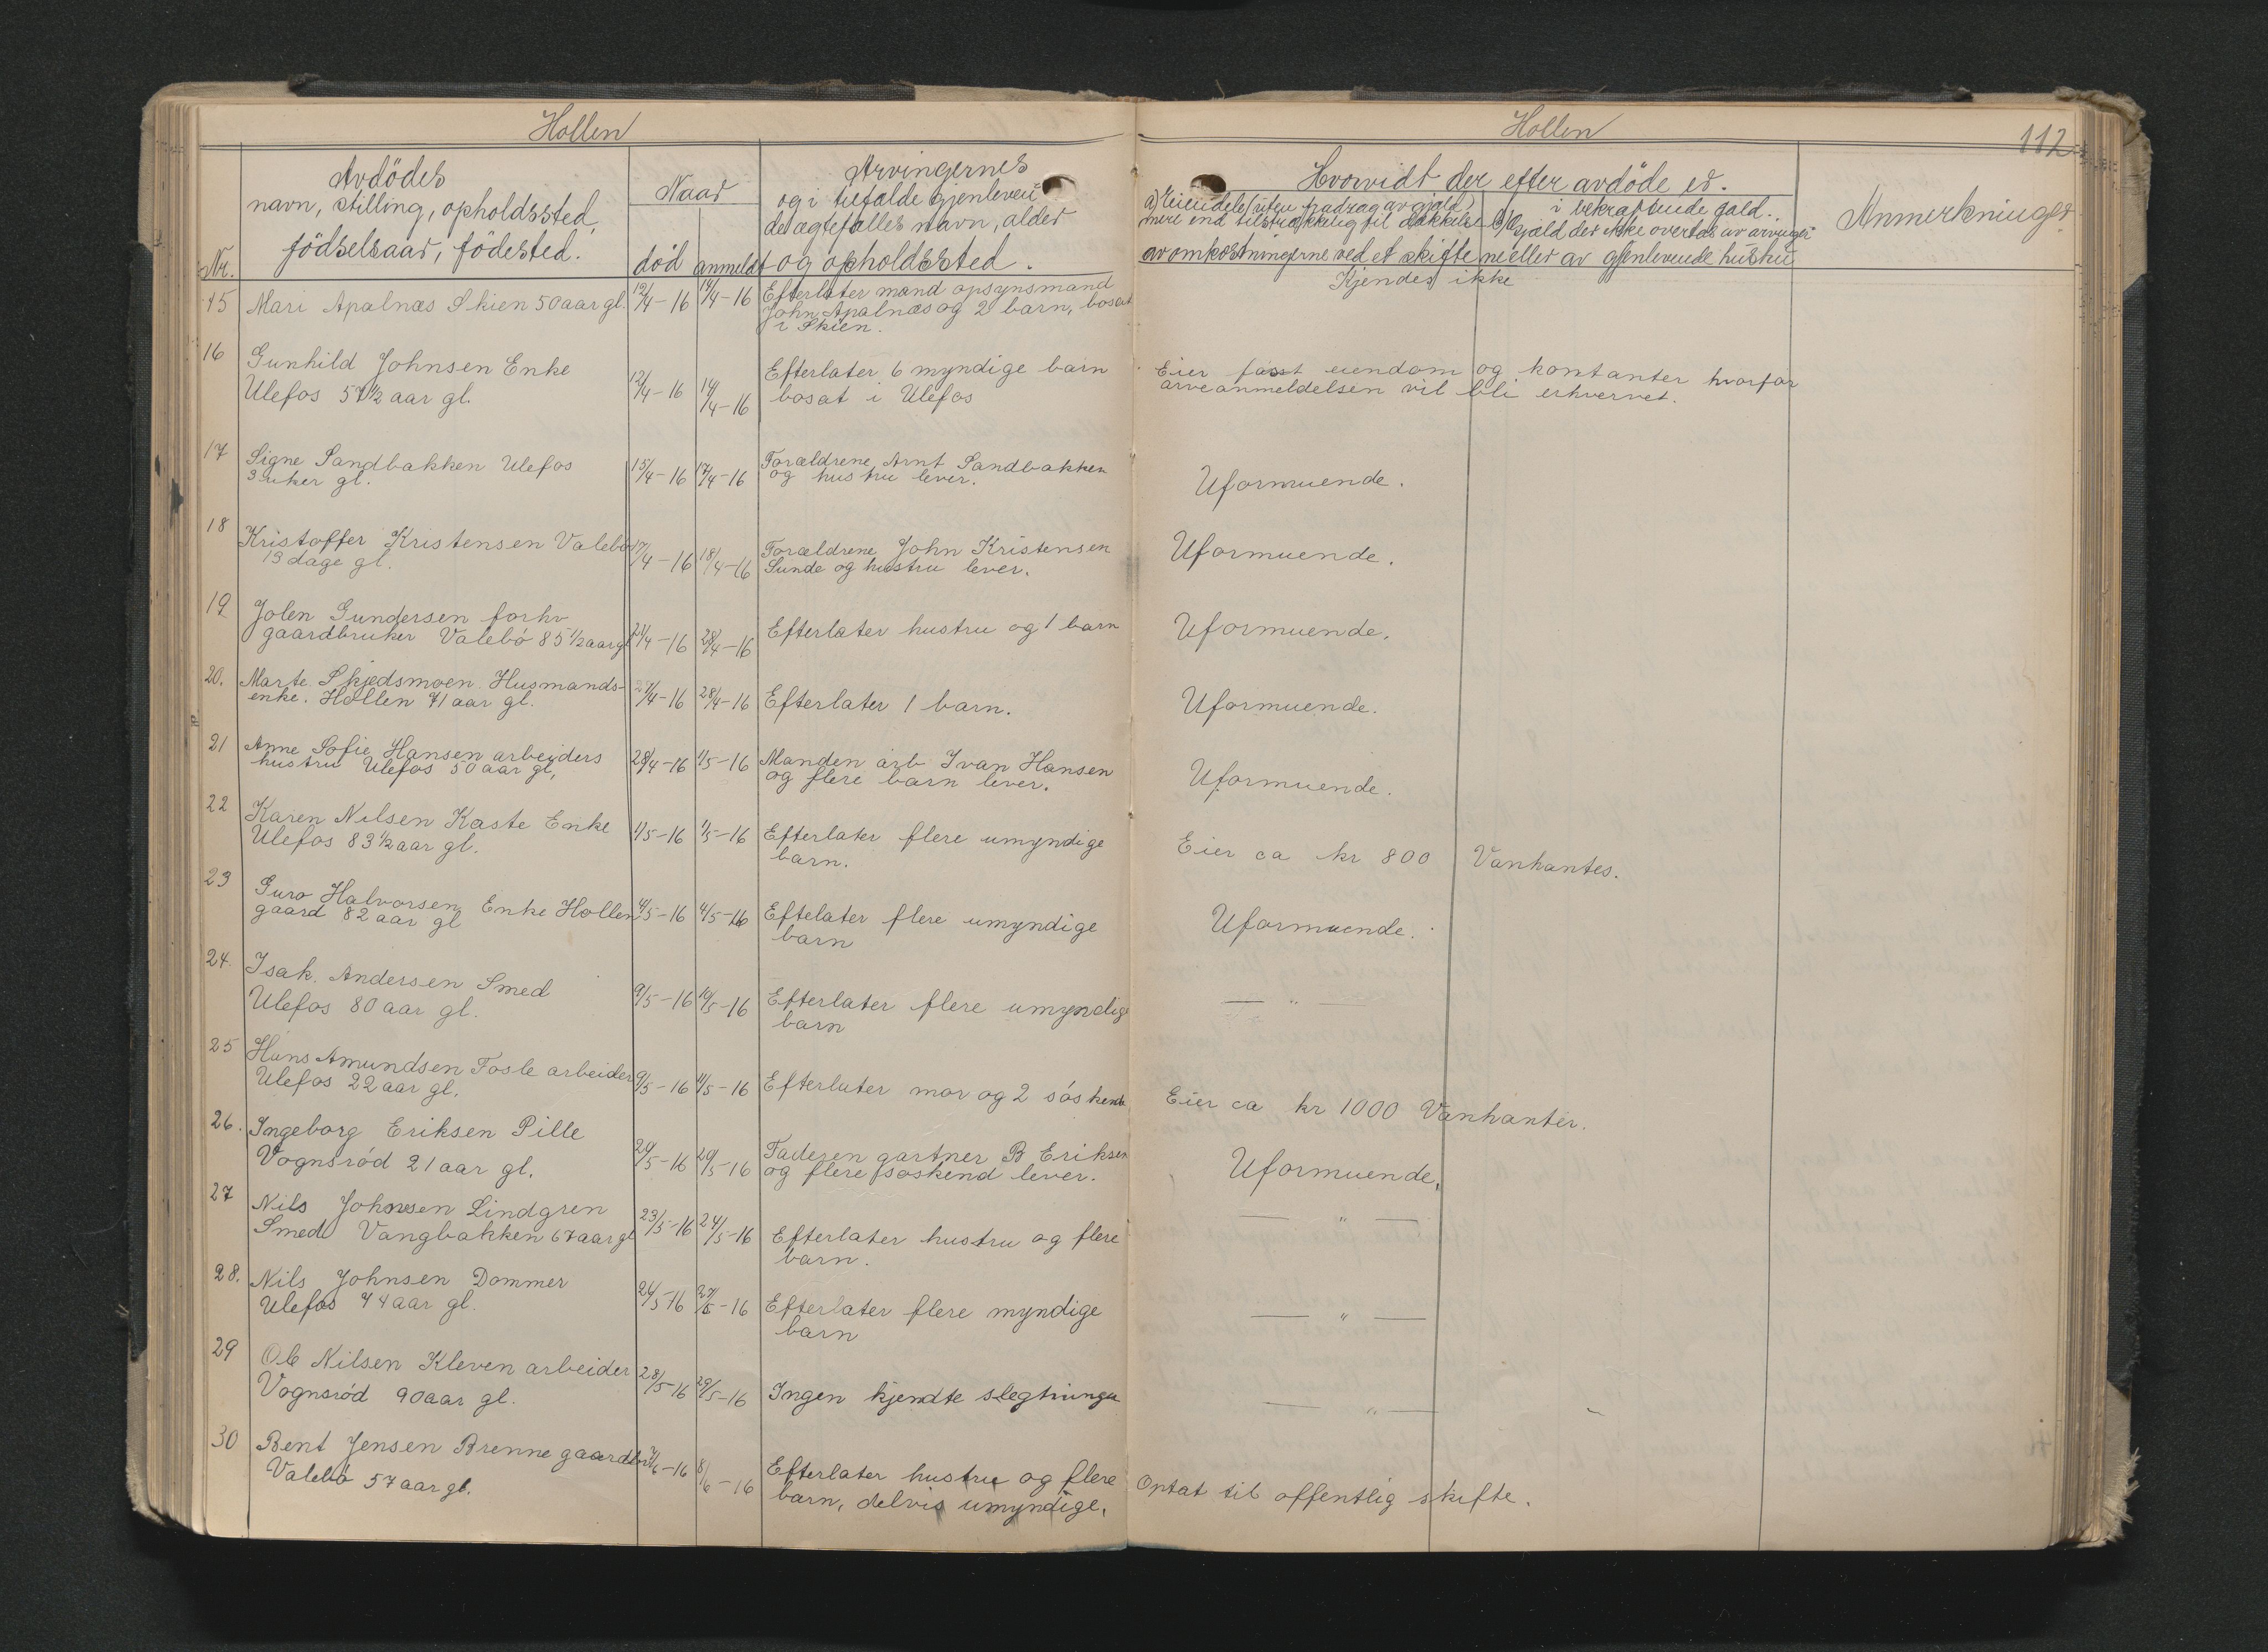 Hollen
Hollen
112
Avdödes
navn, stilling, opholdssted,
födselsaar, födested.
Nr.
Naar
död anmeldt
Arvingernes
og i tilfælde gjenleven
de ægtefælles navn, alder
og opholdssted.
Hvorvidt der efter avdöde er.
a) Eiendele (uten fradrag av gjæld)
mere end tilstrækkelig til dækkelse
av omkostningerne ved et skifte
i bekræftende fald.
b) Gjæld der ikke overtas av arvinger
ne eller av gjenlevende hustru
Anmerkninger
15 Mari Apalnæs Skien 50 aar gl. 12/4-16 14/4-16 Efterlater mand opsynsmand
John Apalnæs og 2 barn, bosat
i Skien.
Kjendes ikke
16 Gunhild Johnsen Enke
Ulefos 57 1/2 aar gl. 12/4-16 14/4-16
Efterlater 6 myndige barn
bosat i Ulefos
Eier fast eiendom og kontanter hvorfor
arveanmeldelsen vil bli erhvervet.
17 Signe Sandbakken Ulefos
3 uker gl. 15/4-16 17/4-16
Forældrene Arnt Sandbakken
og hustru lever.
Uformuende.
18 Kristoffer Kristensen Valebö
13 dage gl. 17/4-16 18/4-16
Forældrene John Kristensen
Sunde og hustru lever.
Uformuende.
19 Jolen Gundersen forhv
gaardbruker Valebö 85 1/2 aar gl 21/4-16 28/4-16
Efterlater hustru og 1 barn
Uformuende.
20. Marte Skjedsmoen Husmands-
enke. Hollen 71 aar gl. 27/4-16 28/4-16 Efterlater 1 barn.
Uformuende.
21 Anne Sofie Hansen arbeiders
hustru Ulefos 50 aar gl, 28/4-16 1/5-16
Manden arb Ivan Hansen
og flere barn lever.
Uformuende.
22 Karen Nilsen Kaste Enke
Ulefos 83 1/2 aar gl. 1/5-16 1/5-16
Efterlater flere umyndige
barn.
Eier ca kr 800 Vanhantes.
23 Guro Halvorsen Enke Hollen
gaard 82 aar gl 4/5-16 4/5-16
Eftelater flere umyndige
barn
Uformuende.
24. Isak. Andersen Smed
Ulefos 80 aar gl. 9/5-16 10/5-16
Efterlater flere umyndige
barn
— " —
25 Hans Amundsen Fosle arbeider
Ulefos 22 aar gl. 9/5-16 11/5-16 Efterlater mor og 2 söskende
Eier ca kr 1000 Vanhanter.
26. Ingeborg Eriksen Pille
Vognsröd 21 aar gl. 20/5-16 20/5-16
Faderen gartner B Eriksen
og flere søskend lever.
Uformuende.
27 Nils Johnsen Lindgren
Smed Vangbakken 67 aar gl 23/5-16 24/5-16
Efterlater hustru og flere
barn.
— " —
28. Nils Johnsen Dommer
Ulefos 74 aar gl. 24/5-16 27/5-16
Efterlater flere myndige
barn
— " —
29 Ole Nilsen Kleven arbeider
Vognsröd 90 aar gl. 28/5-16 29/5-16 Ingen kjendte slegtninger
— " —
30 Bent Jensen Brenne gaardbr
Valebö 57 aar gl. 7/6-16 8/6-16
Efterlater hustru og flere
barn, delvis umyndige.
Optat til offentlig skifte.